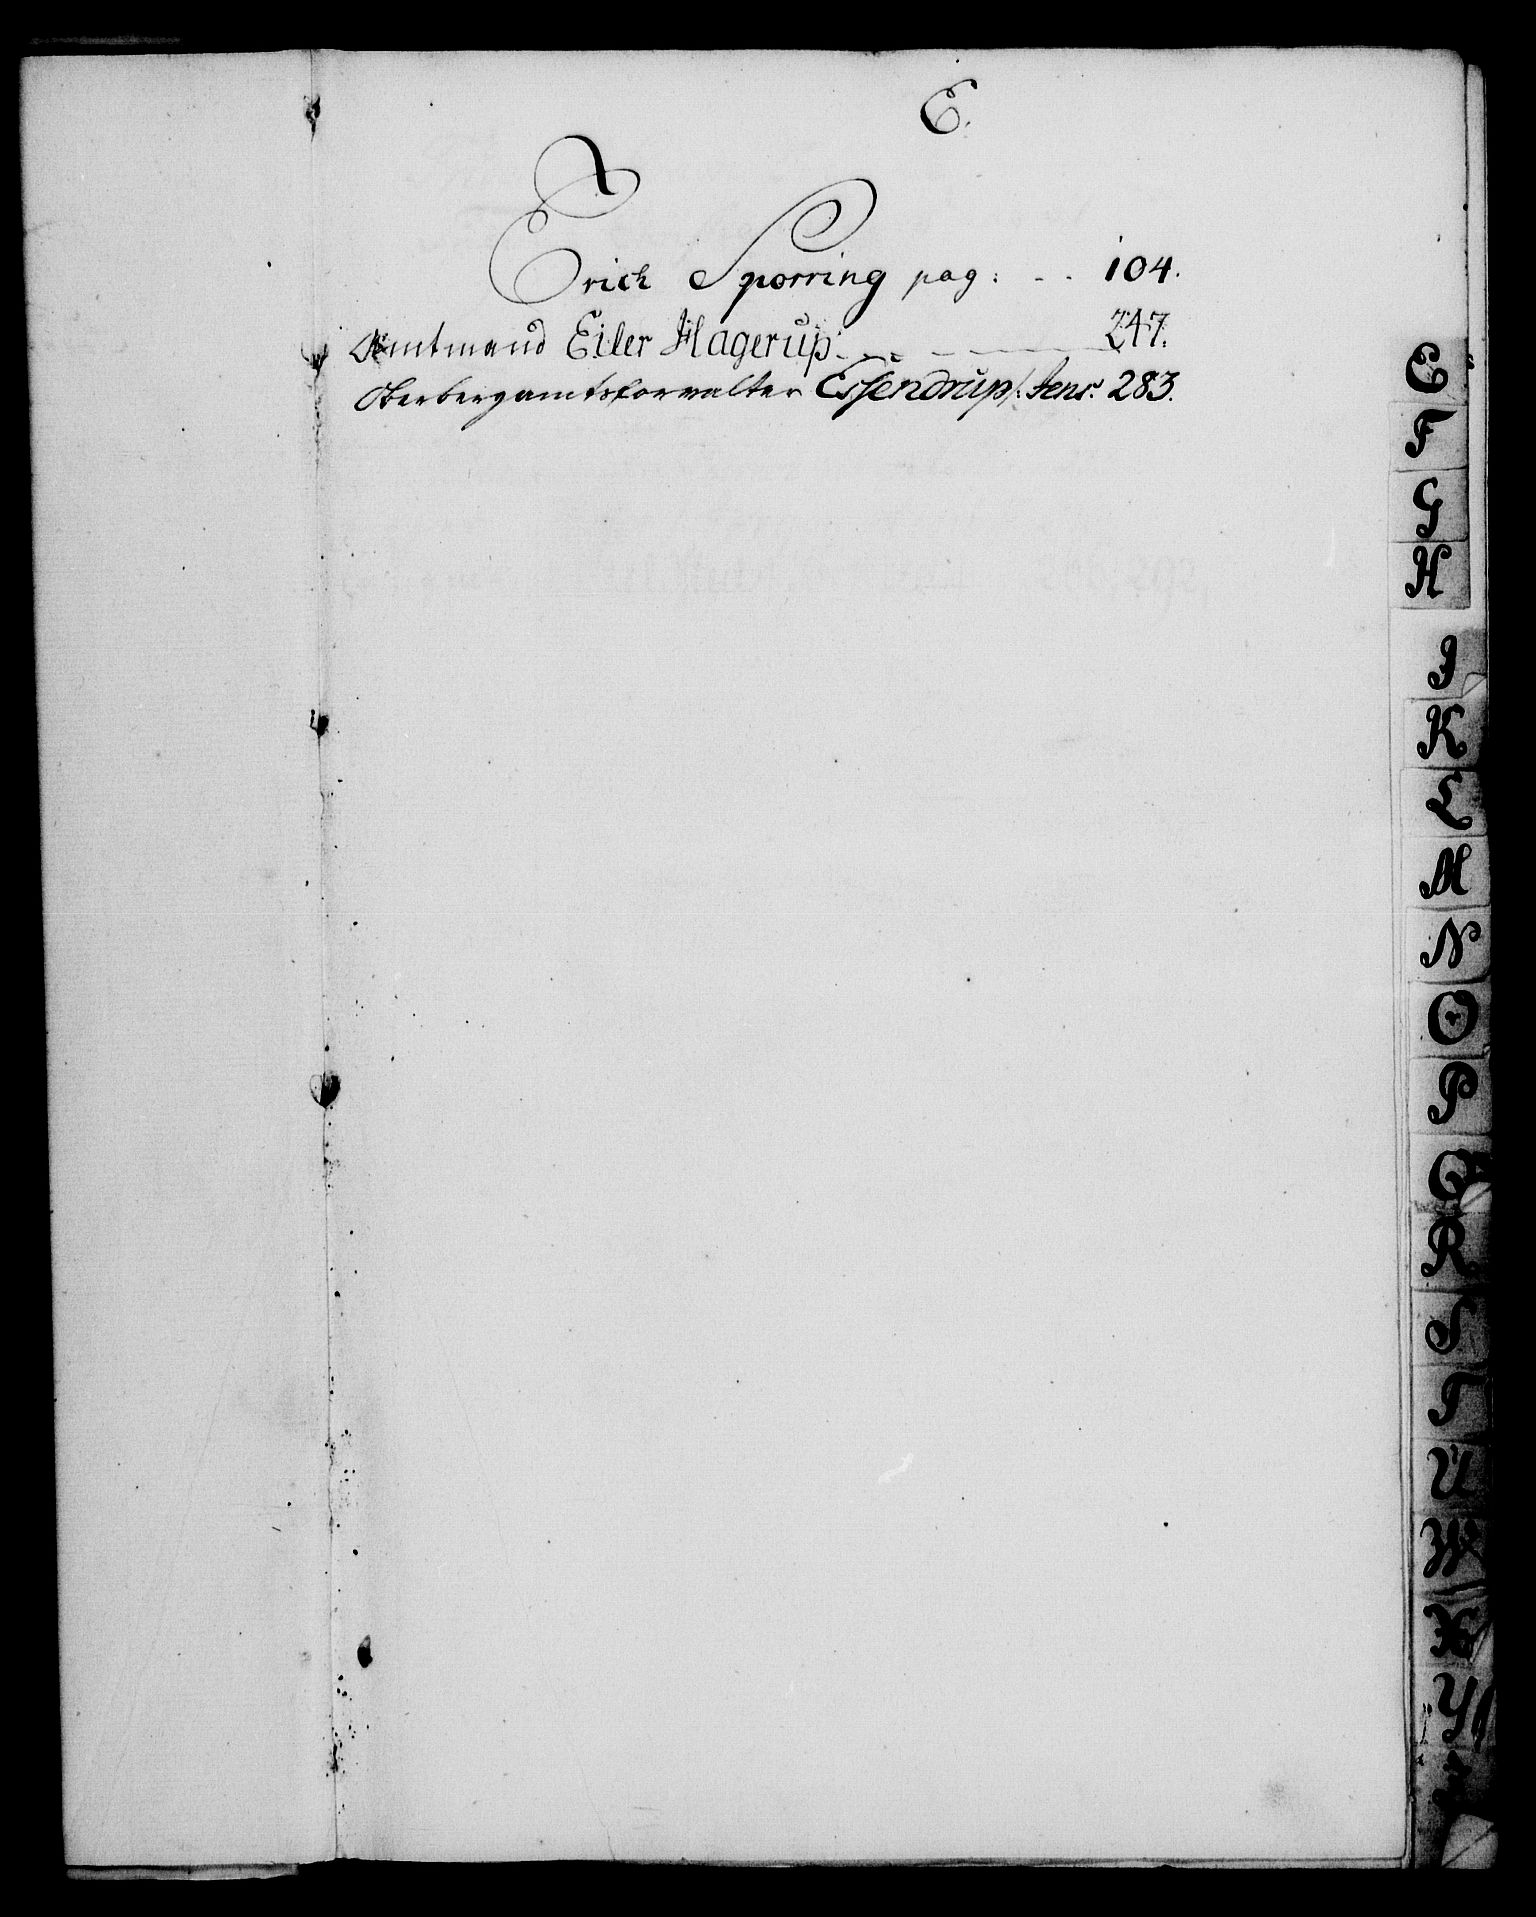 E.
Erich Sporring pag: - - 104.
Amtmand Eiler Hagerup: - - - - 247.
Oberbergamtsforvalter Essendrup /: Jens: 283.
E
F
G
H
I
K
L
M
N
O
P
Q
R
S
T
U
W
X
Y